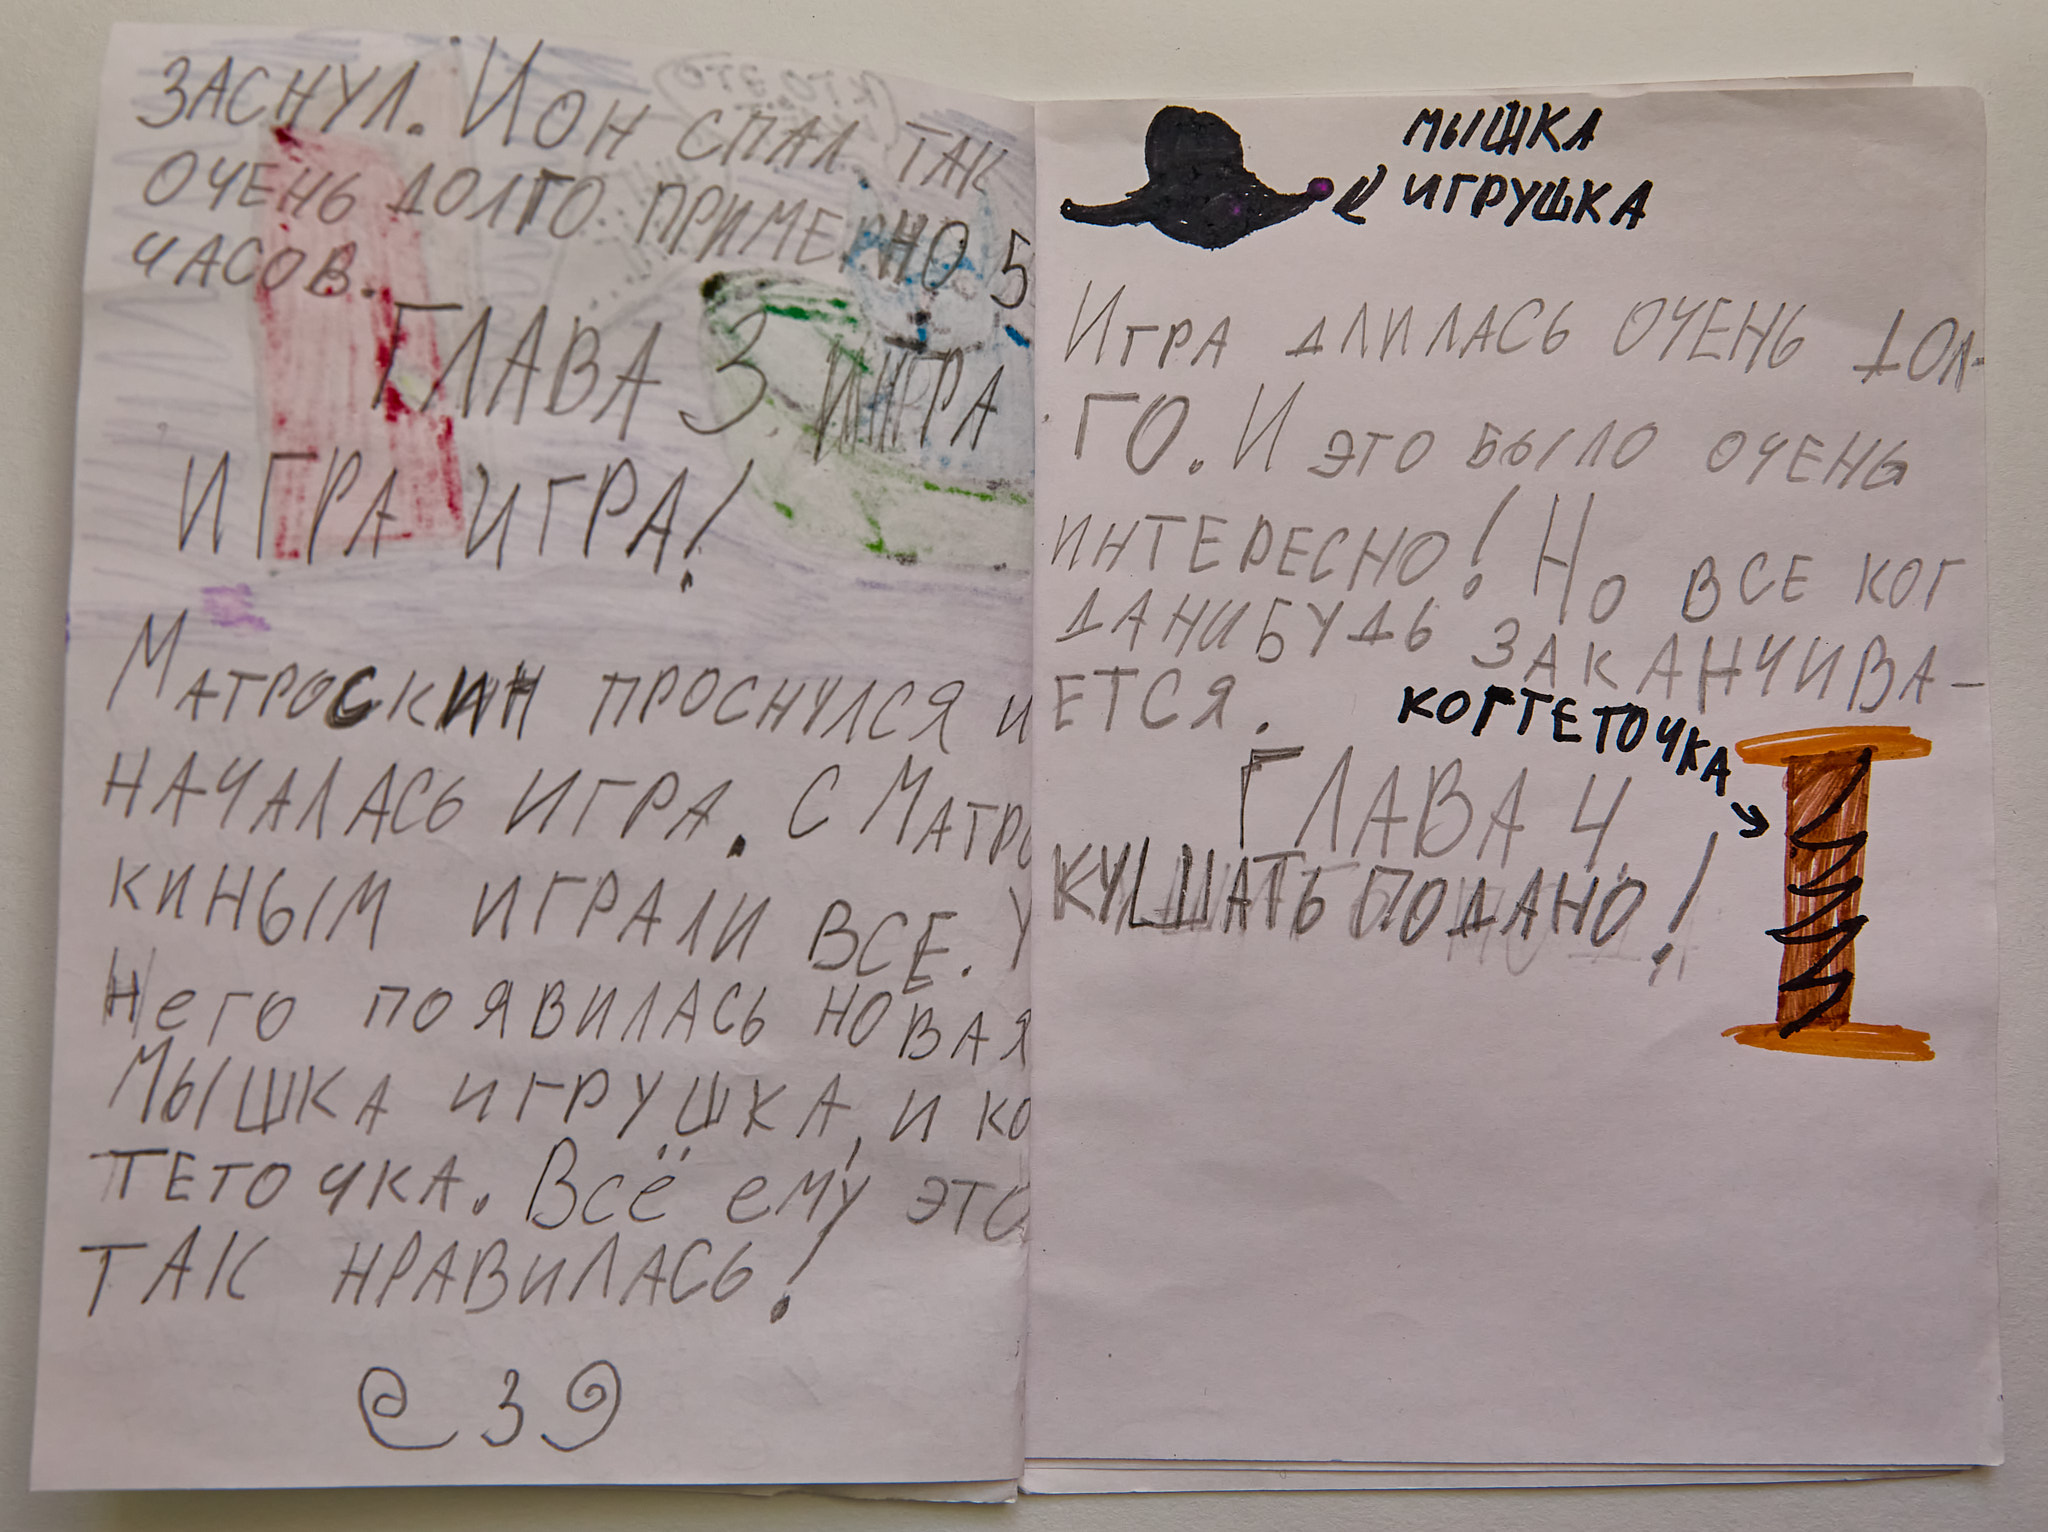 ЗАСНУЛ. ИОН СПАЛ ТАК
ОЧЕНЬ ДОЛГО ПРИМЕРНО 5
ЧАСОВ.
ГЛАВА 3. ИГРА
ИГРА ИГРА!
МАТРОСКИН ПРОСНУЛСЯ И
НАЧАЛАСЬ ИГРА. С МАТРО
КИНЫМ ИГРАЛИ ВСЕ. У
Него ПОЯВИЛАСЬ НОВАЯ
МЫШКА ИГРУШКА, И КО
ТЕТОЧКА. ВСЁ ЕМУ ЭТО
ТАК НРАВИЛАСЬ!
3
МЫШКА
ИГРУШКА
ИГРА ДЛИЛАСЬ ОЧЕНЬ ДОЛ-
ГО. И ЭТО БЫЛО ОЧЕНЬ
ИНТЕРЕСНО! НО ВСЕ КОГ
ДАНИБУДЬ ЗАКАНЧИВА-
ЕТСЯ.
КОГТЕТОЧКА
ГЛАВА 4.
КУШАТЬ ПОДАНО!